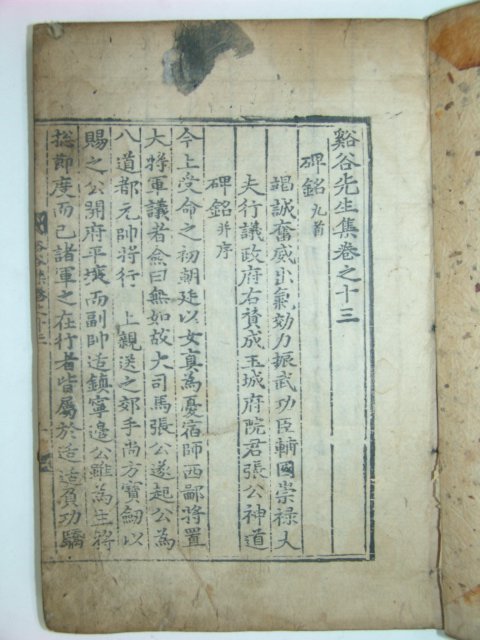 谿谷先生集卷之十三
碑銘 九首
竭誠奮威出氣効力振武功臣輔國崇祿大
夫行議政府右贊成玉城府院君張公神道
碑銘 幷序
今上受命之初朝廷以女眞爲憂宿師西鄙將置
大將軍議者僉曰無如故大司馬張公遂起公爲
八道都元帥將行 上親送之郊手尚方寶劒以
賜之公開府平壤而副帥适鎭寧邊公雖爲主將
摠節度而已諸軍之在行者皆屬於适适負功驕
谷集卷之十三